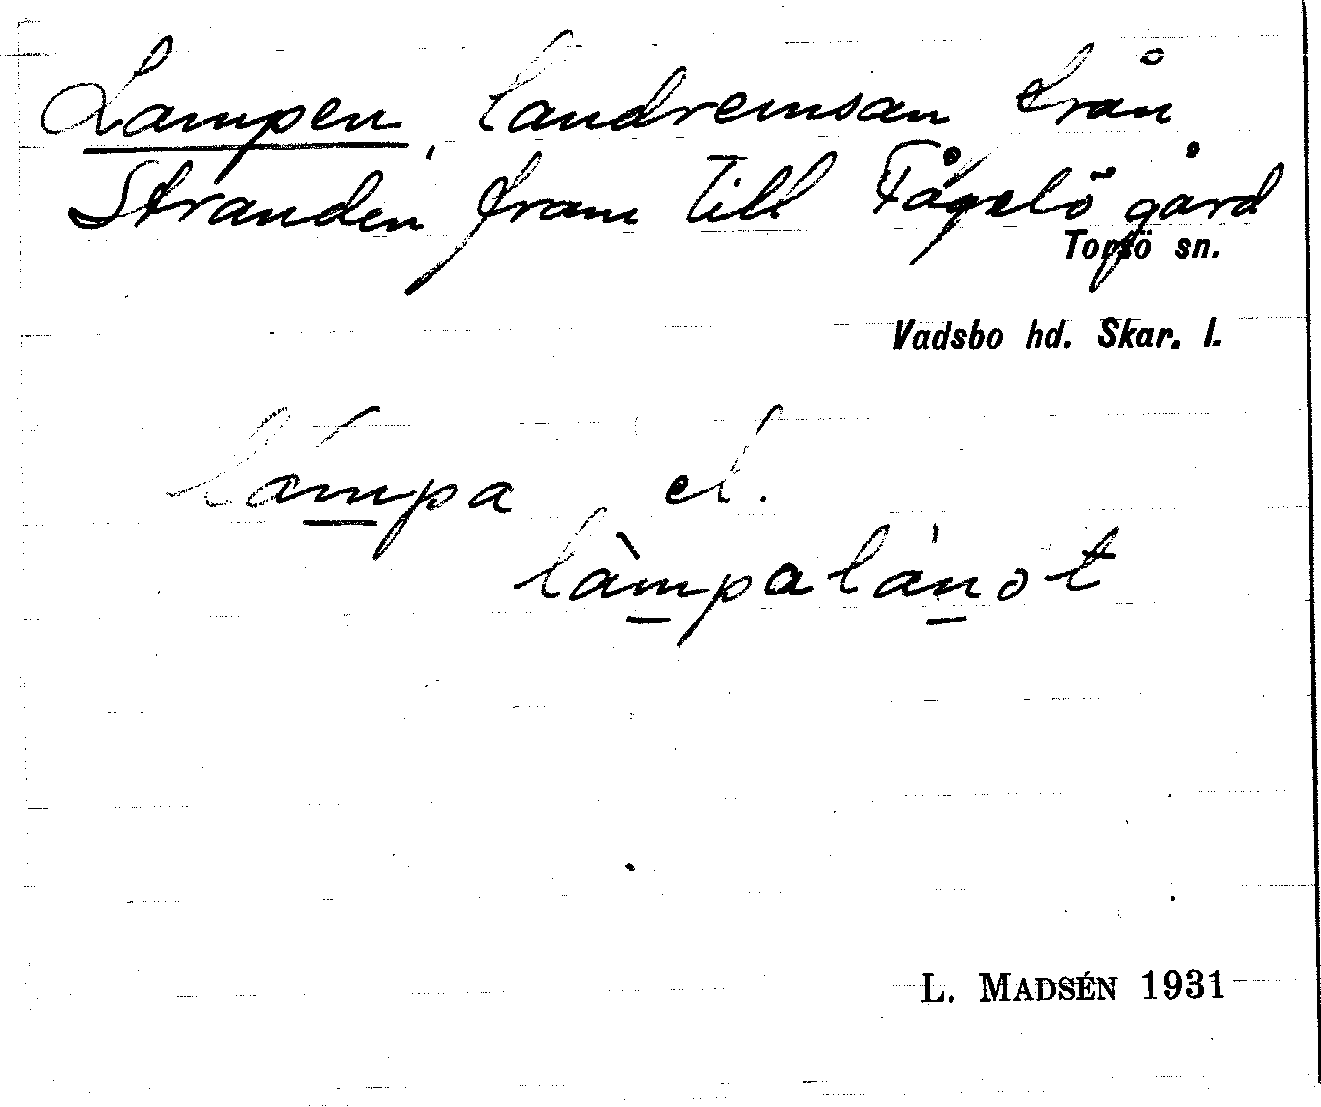 Lampen, landremsan från
Stranden fram till Fågelö gård
Torsö sn.
Vadsbo hd. Skar. l.
lámpa el.
làmpalánɔt
L. MADSÉN 1931